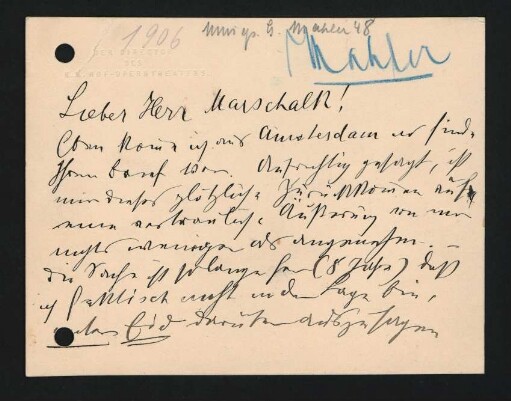 1906
Mahler 48
Mahler
DER DIRECTOR
DES
K.K. HOF-OPERNTHEATERS
Lieber Herr Marschalk!
Eben komme ich aus Amsterdam u. finde
Ihren Brief vor. Aufrichtig gesagt, ist
mir dieses plötzliche Zurückkommen auf
eine vertrauliche Äußerung von mir
nichts weniger als angenehm. –
Die Sache ist so lange her (8 Jahre) daß
ich faktisch nicht in der Lage bin,
unter Eid darüber auszusagen